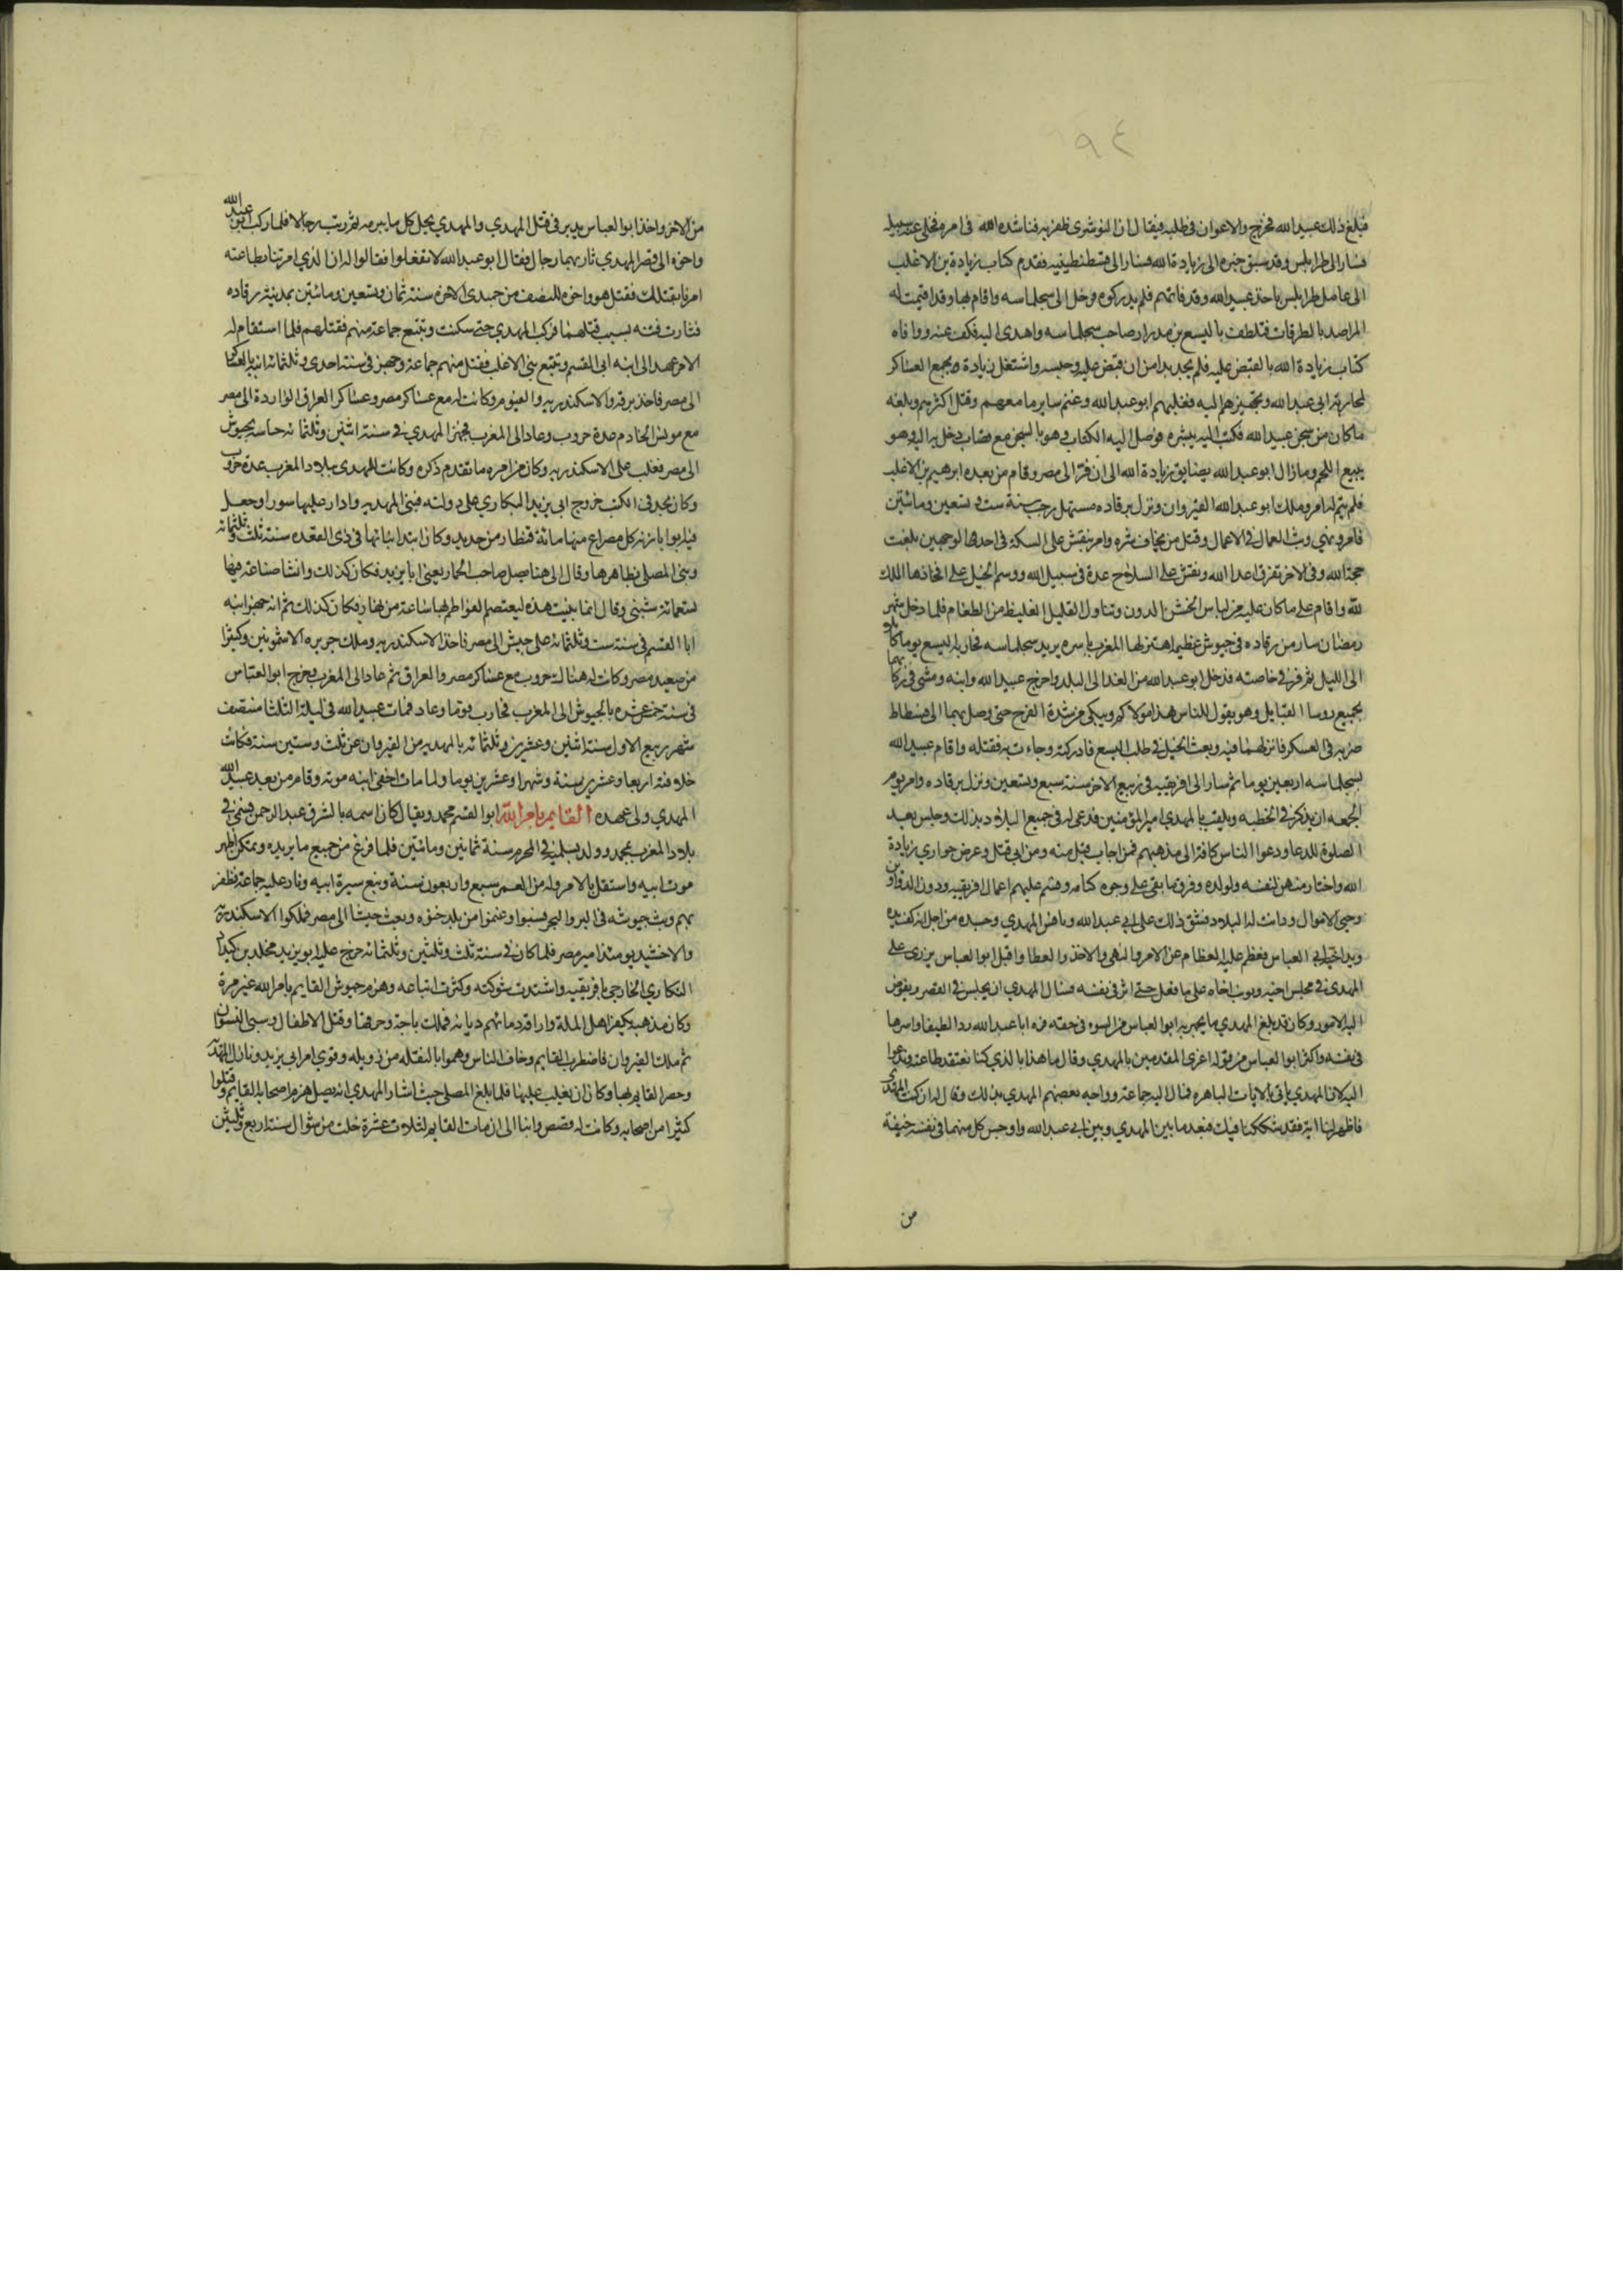 ٩٤
فبلغ ذلك عبيد الله فخرج والاعوان في طلبه فيقال ان النوشري ظفر به فناشده الله في امره فخلى عنه سبيله
فسار الى طرابلس وقد سبق خبره الى زيادة الله فسار الى قسطنطينيه فقدم كتاب زيادة بن الاغلب
الى عامل طرابلس باخذ عبيد الله وقد فاتهم فلم يدركوه فدخل الى سجلماسه واقام بها وقد اقيمت له
المراصد بالطرقات فتلطف باليسع بن مدرار صاحب سجلماسه واهدى اليه فكف عنه ووافاه
كتاب زيادة الله بالقبض عليه فلم يجد بدا من ان قبض عليه وحبسه واشتغل زيادة بجمع العساكر
لمحاربة ابي عبد الله وتجهيزها اليه فغلبهم ابو عبد الله وغنم ساير ما معهم وقتل اكثرهم وبلغه
ما كان من سجن عبيد الله فكتب اليه يبشره فوصل اليه الكتاب وهو بالسجن مع قصاب دخل به اليه وهو
يبيع اللحم وما زال ابو عبد الله يضايق زيادة الله الى ان فر الى مصر وقام من بعده ابرهيم بن الاغلب
فلم يتم له امر وملك ابو عبد الله القيروان ونزل برقاده مستهل رجب سنة ست وتسعين ومائتين
فامر ونهي وبث العمال في الاعمال وقتل من يخاف شره وامر بنقش على السكة في احدها الوجهين بلغت
حجة الله وفي الاخر تفرق اعدا الله ونقش على السلاح عدة في سبيل الله ووسم الخيل على افخاذها الملك
لله واقام على ما كان عليه من لباس الخشن الدون وتناول القليل الغليظ من الطعام فلما دخل شهر
رمضان سار من رقاده في جيوش عظيمه اهتز لها المغرب باسره يريد سجلماسه فحاربه اليسع يوما كاملا
الى الليل ثم فر في خاصته فدخل ابو عبد الله من الغد الى البلد واخرج عبيد الله وابنه ومشى في ركابهما
بجميع روسا القبايل وهو يقول للناس هذا مولاكم ويبكي من شدة الفرح حتى وصل بهما الى فسطاط
ضربه في العسكر فانزلهما فيه وبعث الخيل في طلب اليسع فادركته وجاءت به فقتله واقام عبيد الله
بسجلماسه اربعين يوما ثم سار الى افريقيه في ربيع الاخر سنة سبع وتسعين ونزل برقاده وامر يوم
الجمعه ان يذكر في الخطبه ويلقب بالمهدي امير المؤمنين فدعي له في جميع البلاد بذلك وجلس بعيد
الصلوة للدعا ودعوا الناس كافة الى مذهبهم فمن اجاب قبل منه ومن ابى قتل وعرض جواري زيادة
الله واختار منهن لنفسه ولولده وفرق ما بقى على وجوه كتامه وقسم عليهم اعمال افريقيه ودون الدواوين
وجبى الاموال ودانت له البلاد فشق ذلك على ابي عبد الله ونافس المهدي وحسده من اجل انه كف يده
ويد اخيه ابي العباس فعظم عليه الفطام عن الامر والنهي والاخذ والعطا واقبل ابو العباس يزري على
المهدي في مجلس اخيه ويونب اخاه على ما فعل حتى اثر في نفسه فسال المهدي ان يجلس في القصر ويفوض
اليه الامور وكان قد بلغ المهدي ما يجهر به ابو العباس من السوء في حقه فرد ابا عبد الله ردا لطيفا واسرها
في نفسه واكثر ابو العباس من قوله اغرى المقدمين بالمهدي وقال ما هذا بالذي كنا نعتقد طاعته وندعوا
اليه لان المهدي ياتي بالايات الباهره فمال اليه جماعة وواجه بعضهم المهدي بذلك وقال له ان كنت المهدي
فاظهر لنا اية فقد شككنا فيك فبعد ما بين المهدي وبين ابي عبد الله واوجس كل منهما في نفسه خيفة
من
من الاخر واخذ ابو العباس يدبر في قتل المهدي والمهدي يحل كل ما يبرمه ثم رتب رجالا فلما ركب ابو عبد الله
واخوه الى قصر المهدي ثار بهما رجال فقال ابو عبد الله لا تفعلوا فقالوا له ان الذي امرتنا بطاعته
امرنا بقتلك فقتل هو واخوه للنصف من جمدى الاخره سنة ثمان وتسعين ومائتين بمدينة رقاده
فثارت فتنه بسبب قتلهما فركب المهدي حتى سكنت وتتبع جماعة منهم فقتلهم فلما استقام له
الامر عهد الى ابنه ابي القسم وتتبع بني الاغلب فقتل منهم جماعة وجهز في سنة احدى وثلثمائة ابنه بالعساكر
الى مصر فاخذ برقه والاسكندريه والفيوم وكانت له مع عساكر مصر وعساكر العراق الواردة الى مصر
مع مونس الخادم عدة حروب وعاد الى المغرب فجهز المهدي في سنة اثنين وثلثمائة حباسه بجيوش
الى مصر فغلب على الاسكندريه وكان من امره ما تقدم ذكره وكانت للمهدي ببلاد المغرب عدة حروب
وكان يجد في الكتب خروج ابي يزيد النكاري على دولته فبنى المهديه وادار عليها سورا وجعل
فيه ابوابا زنة كل مصراع منها مائة قنطار من حديد وكان ابتدا بنائها في ذي القعده سنة ثلث وثلثمائة
وبنى المصلى بظاهرها وقال الى هنا يصل صاحب الحمار يعني ابا يزيد فكان كذلك وانشا صناعة فيها
تسعمائة شيني وقال انما بنيت هذه ليعتصم الفواطم بها ساعة من نهار فكان كذلك ثم انه جهز ابنه
ابا القسم في سنة ست وثلثمائة على جيش الى مصر فاخذ الاسكندريه وملك جزيره الاشمونين وكثيرا
من صعيد مصر وكانت له هنالك حروب مع عساكر مصر والعراق ثم عاد الى المغرب وخرج ابو العباس
في سنة خمس عشره بالجيوش الى المغرب فحارب قوما وعاد فمات عبيد الله في ليلة الثلثا منتصف
شهر ربيع الاول سنة اثنين وعشرين وثلثمائة بالمهديه من القيروان عن ثلث وستين سنة فكانت
خلافته اربعا وعشرين سنة وشهرا وعشرين يوما ولما مات اخفى ابنه موته وقام من بعد عبيد الله
المهدي ولى عهده القايم بامر الله ابو القسم محمد ويقال كان اسمه بالشرق عبد الرحمن فتسمى في
بلاد المغرب بمحمد وولد بسلميه في المحرم سنة ثمانين ومائتين فلما فرغ من جميع ما يريده وتمكن اظهر
موت ابيه واستقل بالامر وله من العمر سبع واربعون سنة وتبع سيرة ابيه وثار عليه جماعة فظفر
بهم وبث جيوشه في البر والبحر فسبوا وغنموا من بلد جنوه وبعث جيشا الى مصر فملكوا الاسكندرية
والاخشيد يومئذ امير مصر فلما كان في سنة ثلث وثلثين وثلثمائة خرج عليه ابو يزيد مخلد بن كيداد
النكاري الخارجي بافريقيه واشتدت شوكته وكثرت اتباعه وهزم جيوش القايم بامر الله غير مرة
وكان مذهبه يكفر اهل الملة واراقة دمائهم ديانه فملك باجة وحرقها وقتل الاطفال وسبى النسوان
ثم ملك القيروان فاضطرب القايم وخاف الناس وهموا بالنقله من زويله وقوي امر ابي يزيد ونازل المهدية
وحصر القايم بها وكاد ان يغلب عليها فلما بلغ المصلى حيث اشار المهدي انه يصل هزمه اصحاب القايم وقتلوا
كثيرا من اصحابه وكانت له قصص وانبا الى ان مات القايم لثلاث عشرة خلت من شوال سنة اربع وثلثين